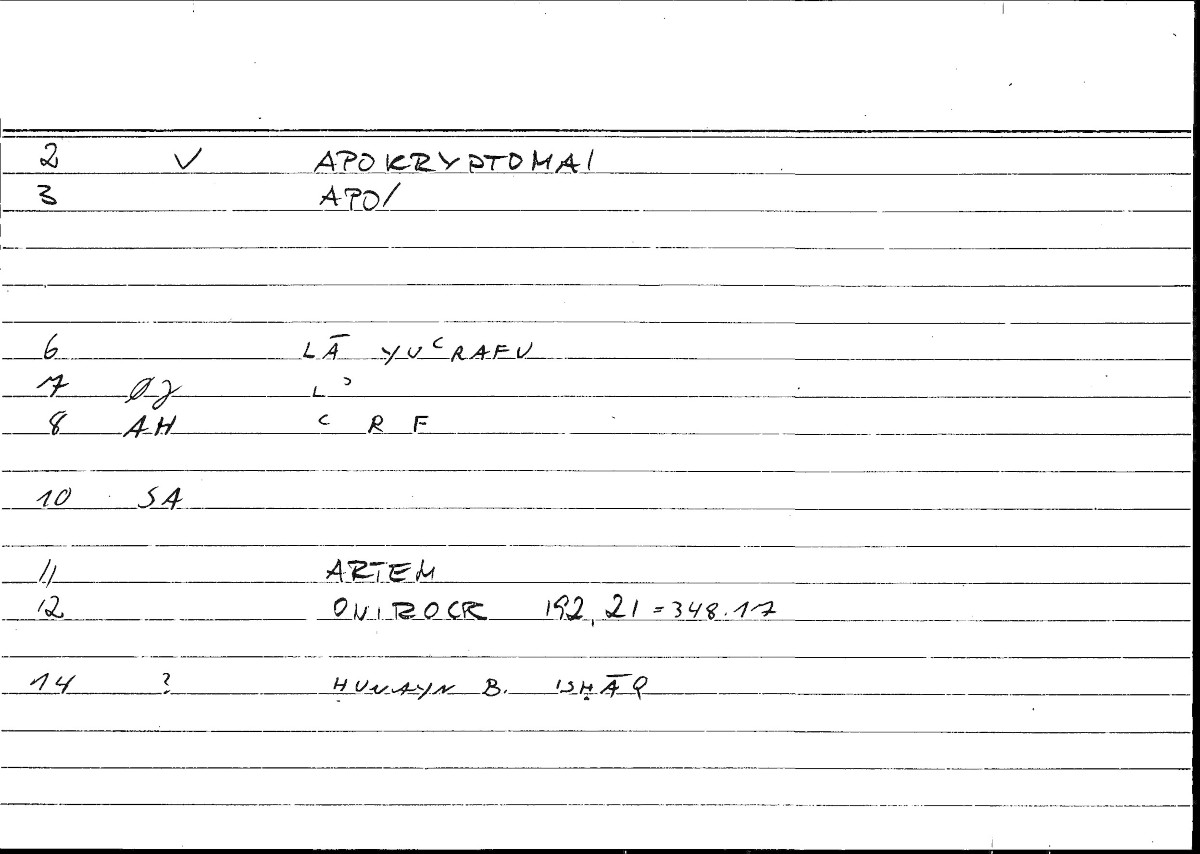 2 V APOKRYPTOMAI
3 APO/
6 LĀ YUʿRAFU
7 ØJ Lʾ
8 AH ʿ R F
10 SA
11 ARTEM
12 ONIROCR 192, 21 = 348.17
14 ? ḤUNAYN B. ISḤĀQ